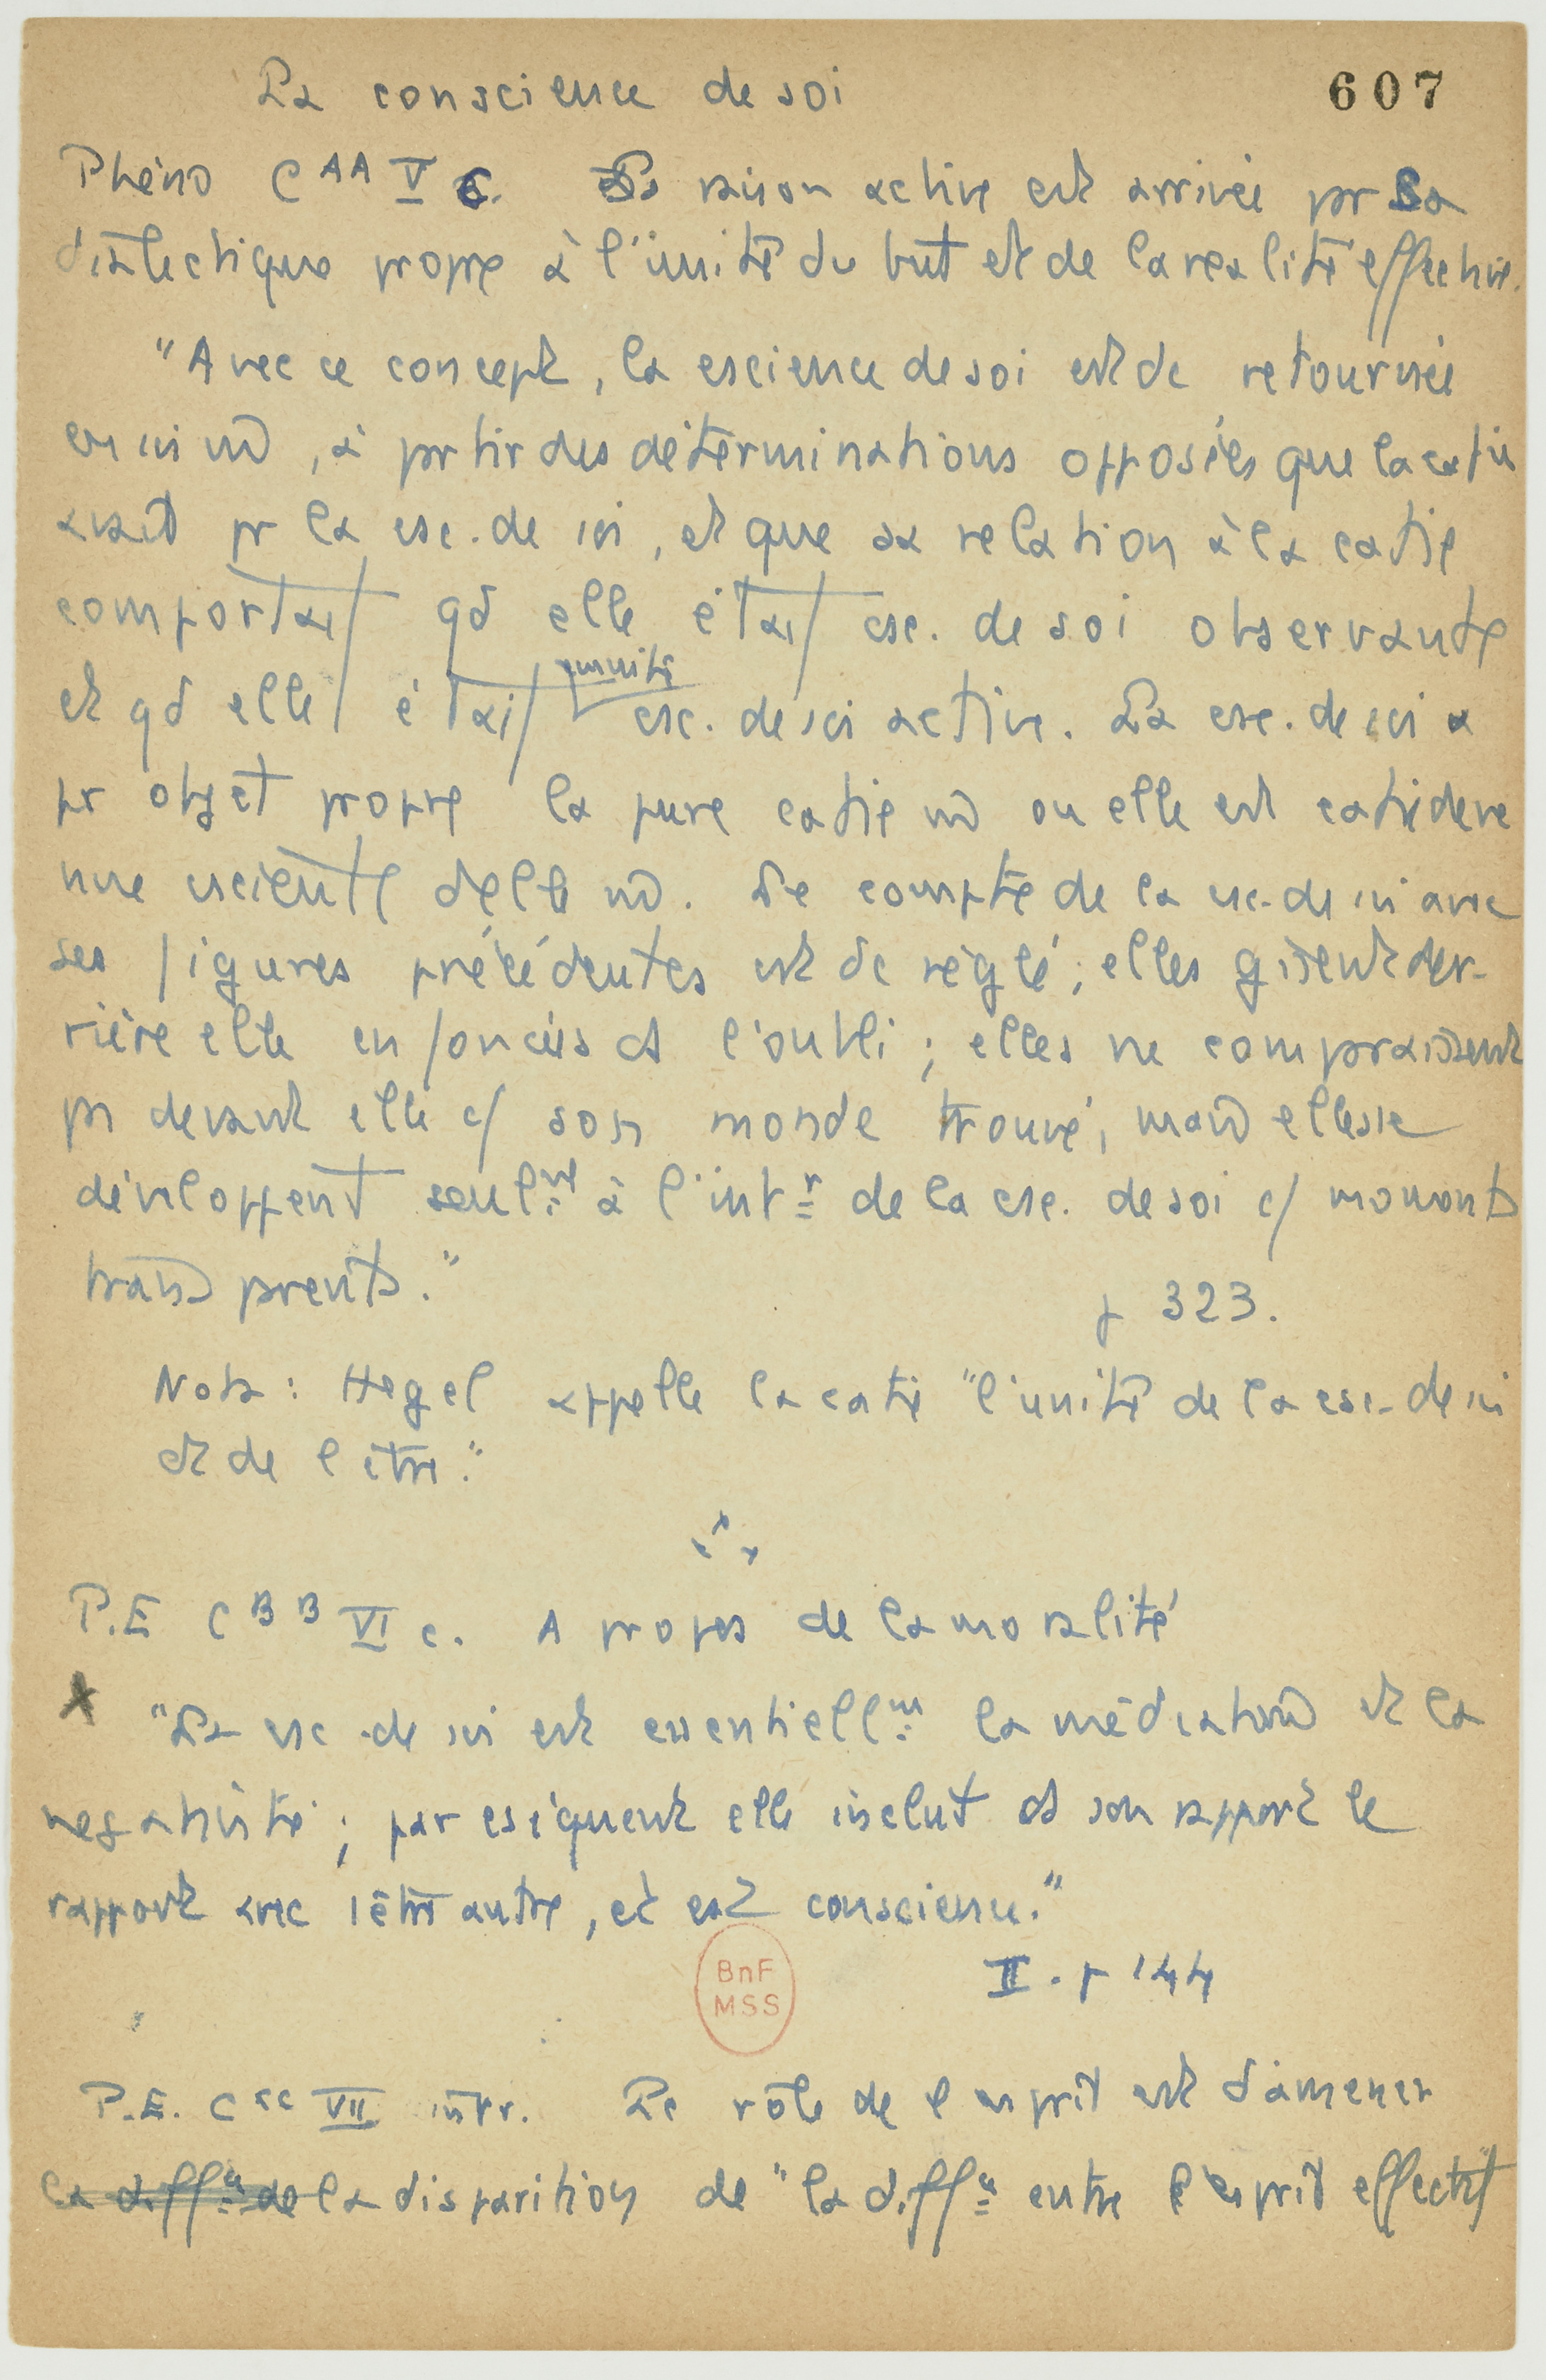 La conscience de soi
607
Phéno C AA V C. La raison active est arrivée pr sa
dialectique propre à l'unité du but et de la réalité effective.
"Avec ce concept, la cscience de soi est dc retournée
en soi m̂, à prtir des déterminations opposées que la catie
avait pr la csc. de soi, et que sa relation à la catie
comportait qd elle était csc. de soi observante
et qd elle était ensuite csc. de soi active. La csc. de soi a
pr objet propre la pure catie m̂ ou elle est catie deve
nue csciente d'elle m̂. Le compte de la csc. de soi avec
ses figures précédentes est dc réglé ; elles gisent der-
rière elle enfoncées ds l'oubli ; elles ne compraissent
ps devant elle c/ son monde trouvé, mais elles se
développent seulmt à l'intr de la csc. de soi c/ moments
transprents."
p 323.
Nota : Hegel appelle la catie "l'unité de la csc. de soi
et de l'être."
P.E C BB VI c. A propos de la moralité
x "La csc. de soi est essentiellmt la médiation et la
négativité ; par cséquent elle inclut ds son rapport le
rapport avec l'être autre, et est conscience."
II . p 144
BnF
MSS
P.E. C CC VII intr. Le rôle de l'esprit est d'amener
la diffce de la disparition de "la diffce entre l'esprit effectif